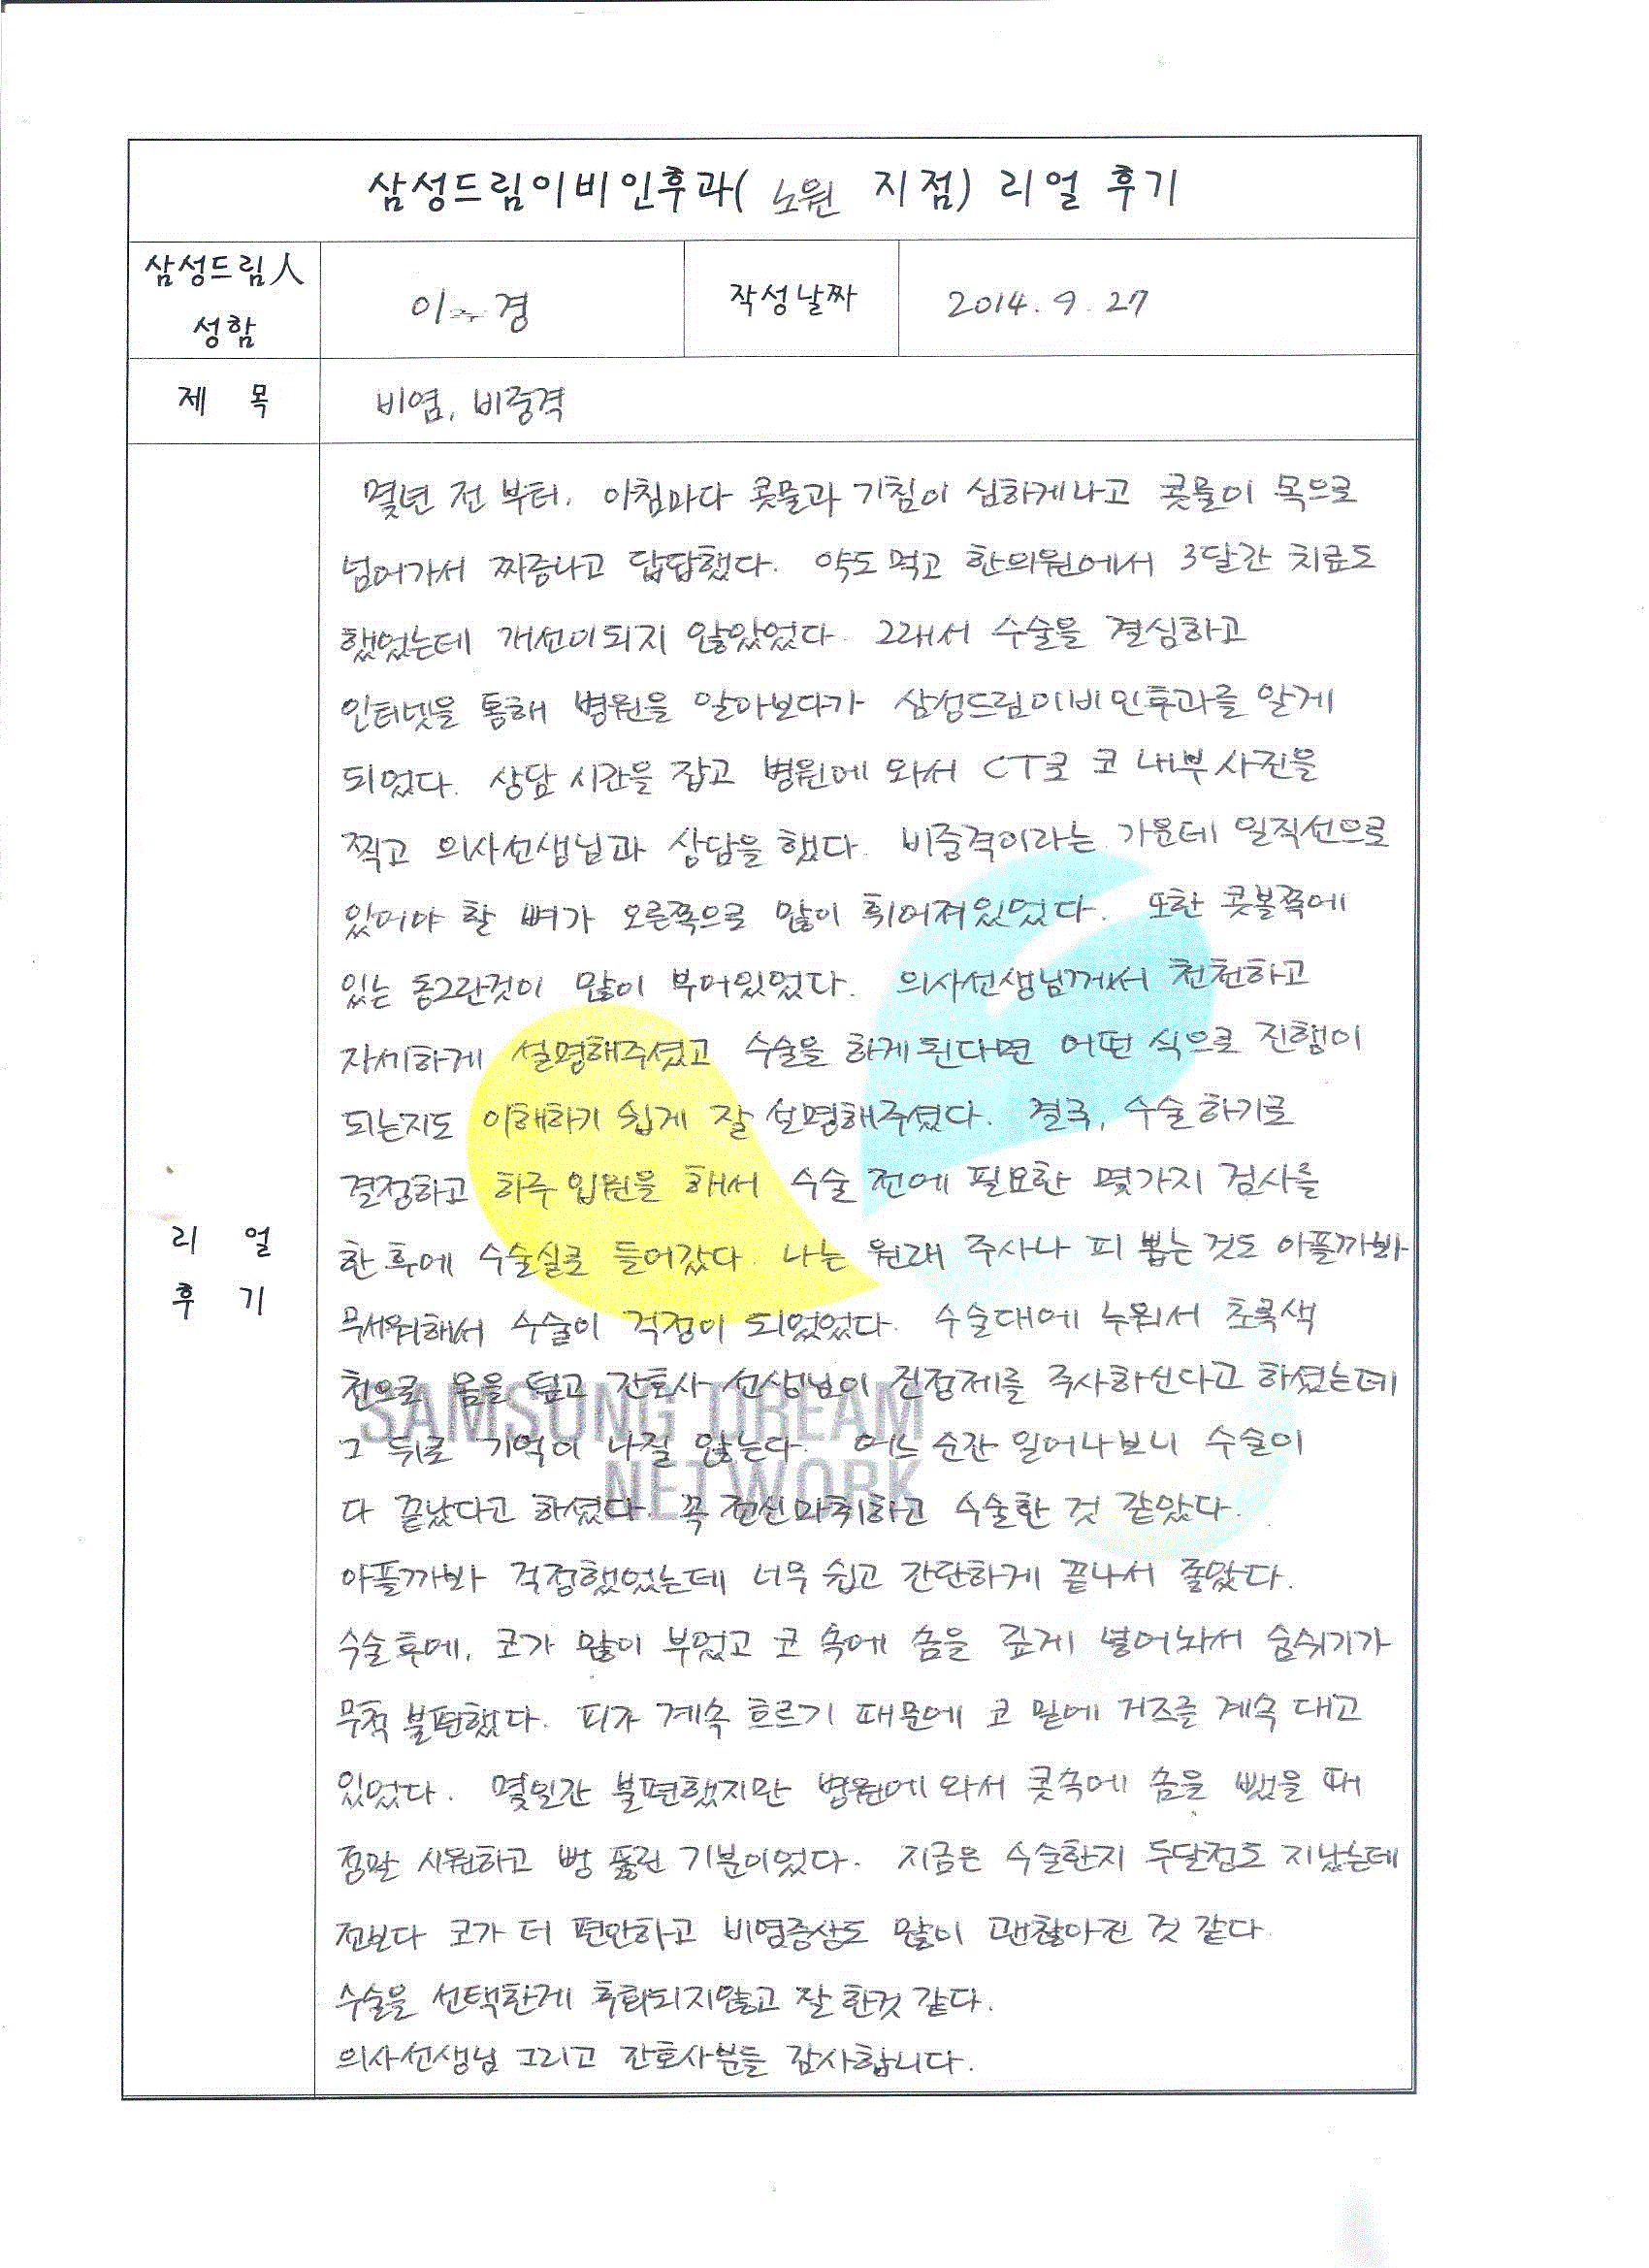 삼성드림이비인후과( 노원 지점) 리얼 후기
삼성드림人
성함
이 경
작성날짜
2014. 9. 27
제 목
비염, 비중격
몇년 전 부터, 아침마다 콧물과 기침이 심하게나고 콧물이 목으로
넘어가서 짜증나고 답답했다. 약도 먹고 한의원에서 3달간 치료도
했었는데 개선이되지 않았었다. 그래서 수술을 결심하고
인터넷을 통해 병원을 알아보다가 삼성드림이비인후과를 알게
되었다. 상담 시간을 잡고 병원에 와서 CT로 코 내부사진을
찍고 의사선생님과 상담을 했다. 비중격이라는 가운데 일직선으로
있어야 할 뼈가 오른쪽으로 많이 휘어져있었다. 또한 콧볼쪽에
있는 동그란것이 많이 부어있었다. 의사선생님께서 천천하고
자세하게 설명해주셨고 수술을 하게된다면 어떤 식으로 진행이
되는지도 이해하기 쉽게 잘 설명해주셨다. 결국, 수술하기로
결정하고 하루 입원을 해서 수술 전에 필요한 몇가지 검사를
한 후에 수술실로 들어갔다. 나는 원래 주사나 피 뽑는 것도 아플까봐
무서워해서 수술이 걱정이 되었었다. 수술대에 누워서 초록색
천으로 몸을 덮고 간호사 선생님이 진정제를 주사하신다고 하셨는데
그 뒤로 기억이 나질 않는다. 어느 순간 일어나보니 수술이
다 끝났다고 하셨다. 꼭 전신마취하고 수술한 것 같았다.
아플까봐 걱정했었는데 너무 쉽고 간단하게 끝나서 좋았다.
수술후에, 코가 많이 부었고 코 속에 솜을 깊게 넣어놔서 숨쉬기가
무척 불편했다. 피가 계속 흐르기 때문에 코 밑에 거즈를 계속 대고
있었다. 몇일간 불편했지만 병원에 와서 콧속에 솜을 뺐을 때
정말 시원하고 뻥 뚫린 기분이었다. 지금은 수술한지 두달정도 지났는데
전보다 코가 더 편안하고 비염증상도 많이 괜찮아진 것 같다.
수술을 선택한게 후회되지않고 잘 한것 같다.
의사선생님 그리고 간호사분들 감사합니다.
리 얼
후 기
SAMSUNG DREAM
NETWORK